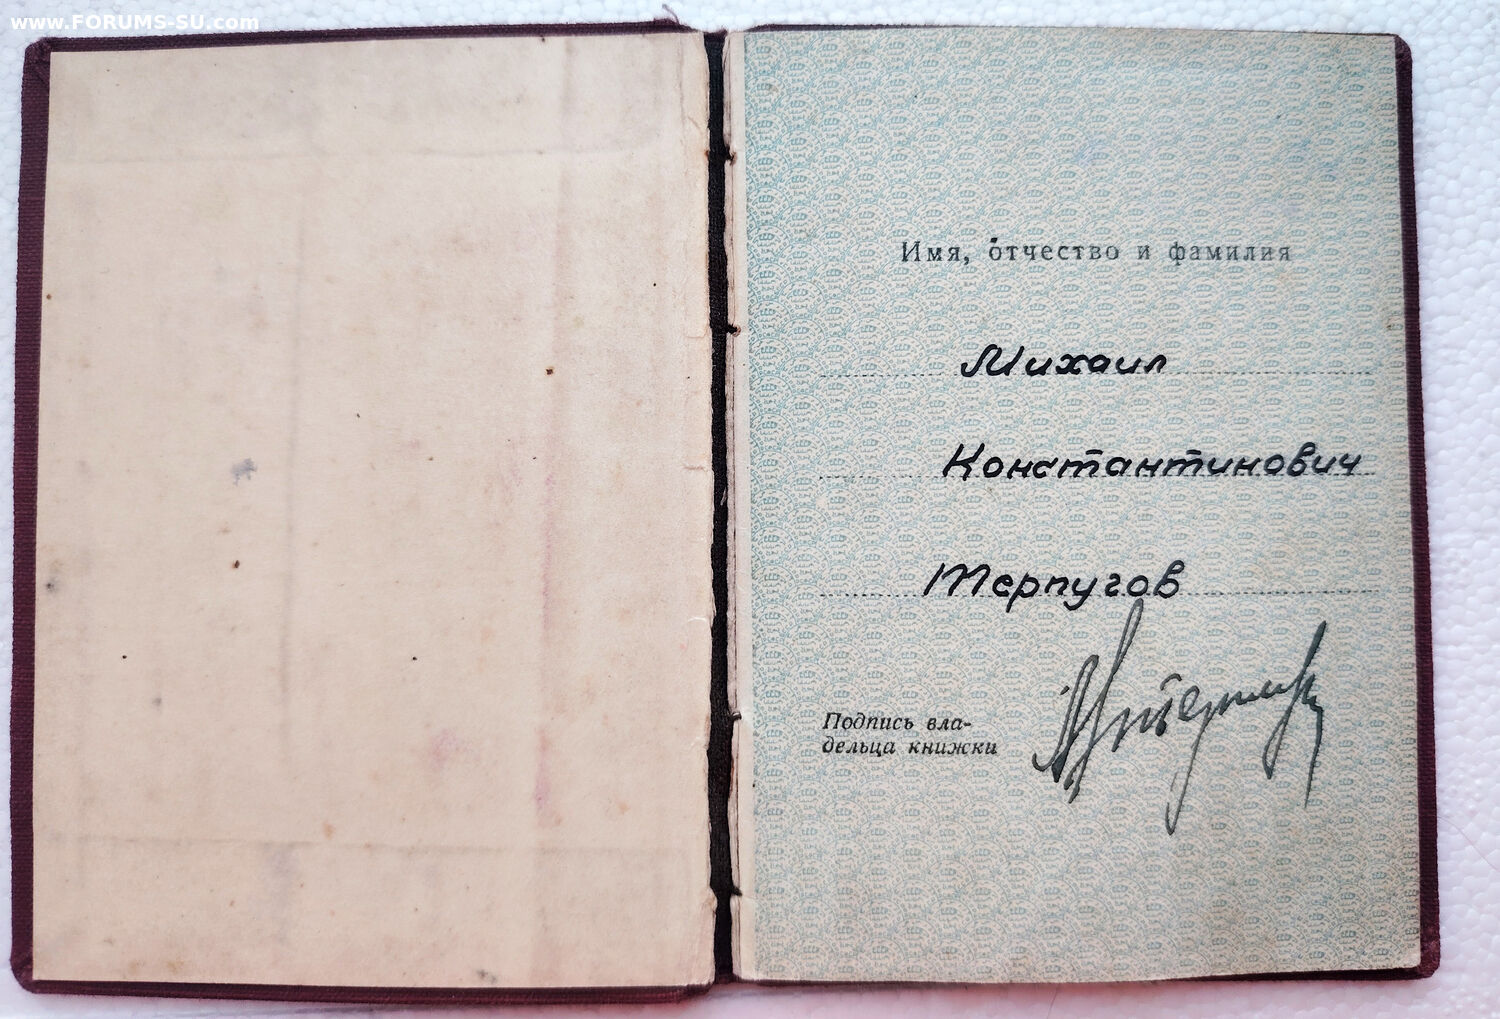 www.FORUMS-SU.com
Имя, отчество и фамилия
Михаил
Константинович
Терпугов
Подпись вла-
дельца книжки